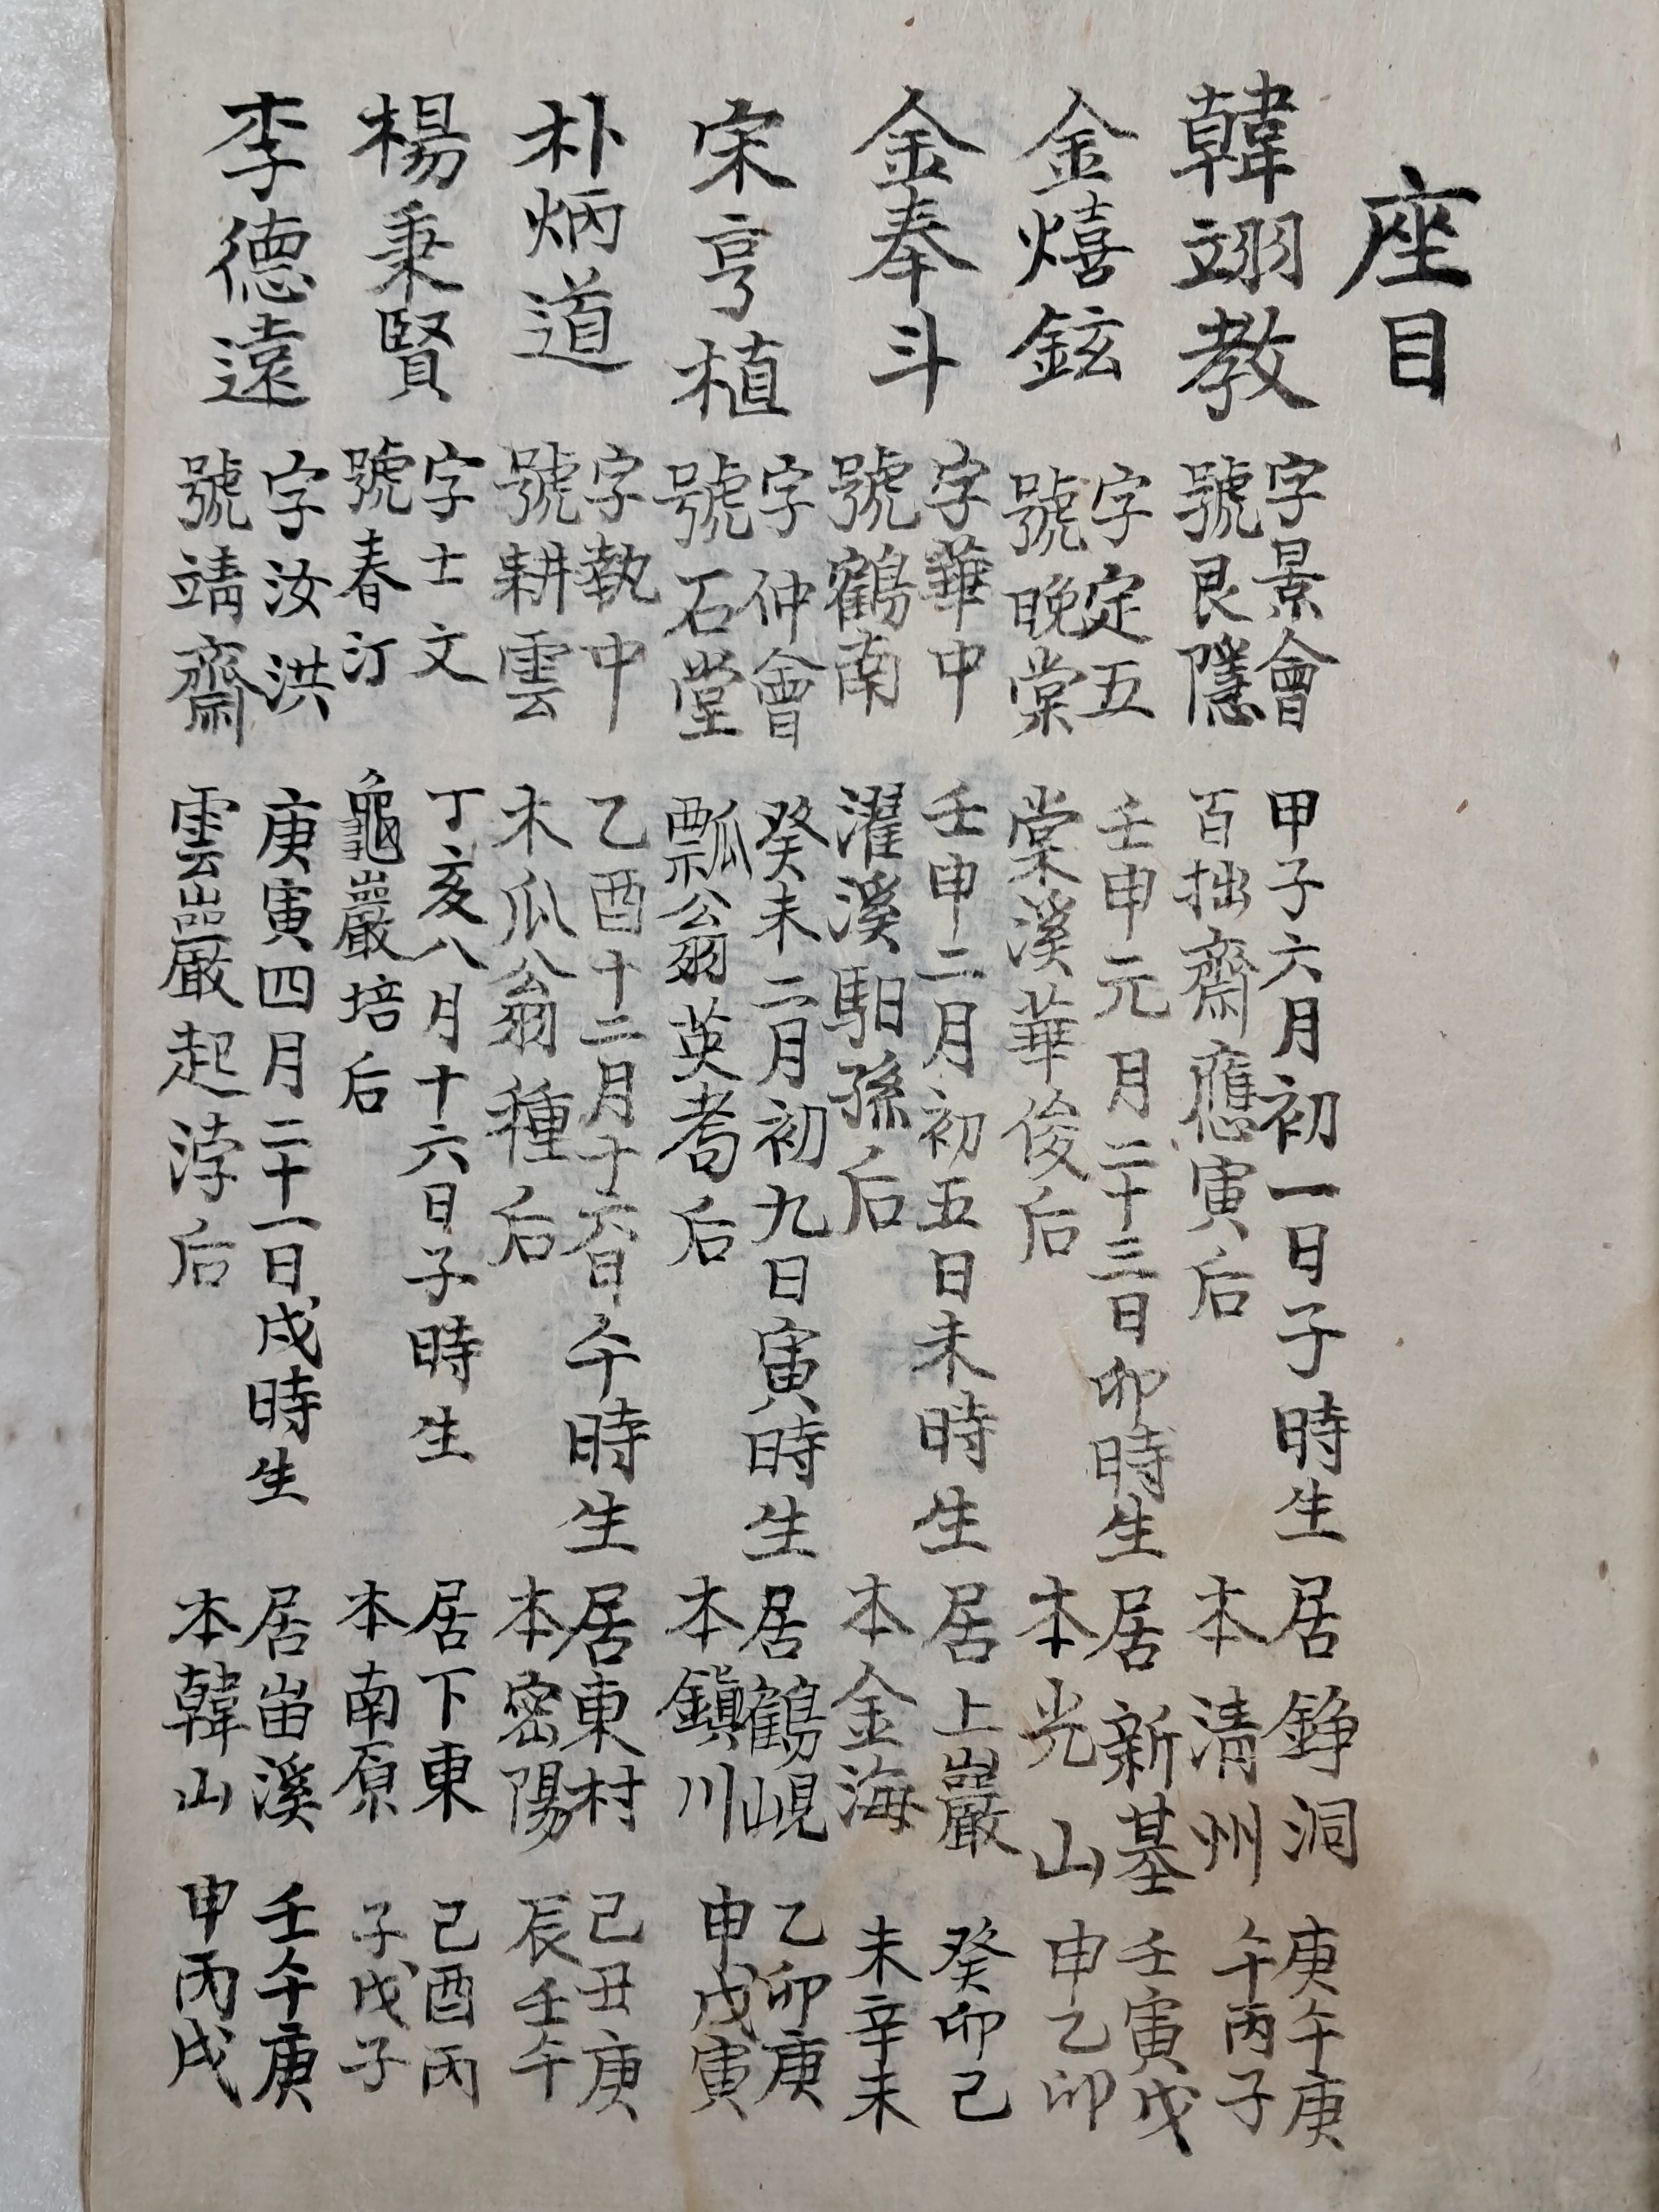 座目
韓翊教
字景會
號艮隱
甲子六月初一日子時生
百拙齋應寅后
居錚洞
本清州
庚午庚
午丙子
金熺鉉
字定五
號晩棠
壬申元月二十三日卯時生
棠溪華俊后
居新基
本光山
壬寅戊
申乙卯
金奉斗
字華中
號鶴南
壬申二月初五日未時生
濯溪馹孫后
居上巖
本金海
癸卯己
未辛未
宋亨植
字仲會
號石堂
癸未二月初九日寅時生
瓢翁英耉后
居鶴峴
本鎭川
乙卯庚
申戊寅
朴炳道
字執中
號耕雲
乙酉十二月十六日午時生
木瓜公翁種后
居東村
本密陽
己丑庚
辰壬午
楊秉賢
字士文
號春汀
丁亥八月十六日子時生
龜巖培后
居下東
本南原
己酉丙
子戊子
李德遠
字汝洪
號靖齋
庚寅四月二十一日戌時生
雲巖起浡后
居畓溪
本韓山
壬午庚
申丙戌